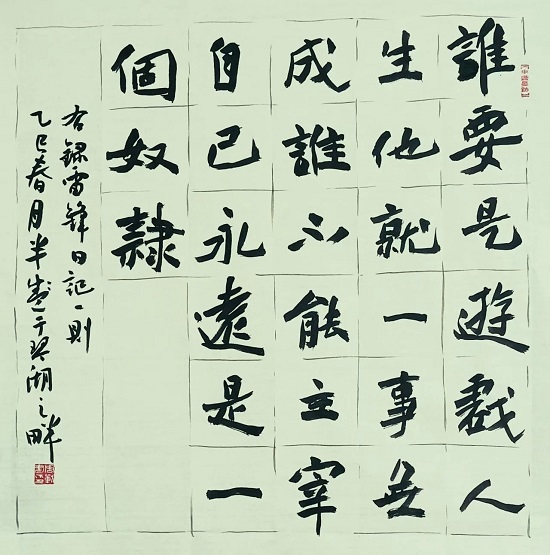 誰要是遊戲人
生他就一事無
成誰不能主宰
自己永遠是一
個奴隸
右録雷鋒日記一則
乙巳春月半于琴湖之畔